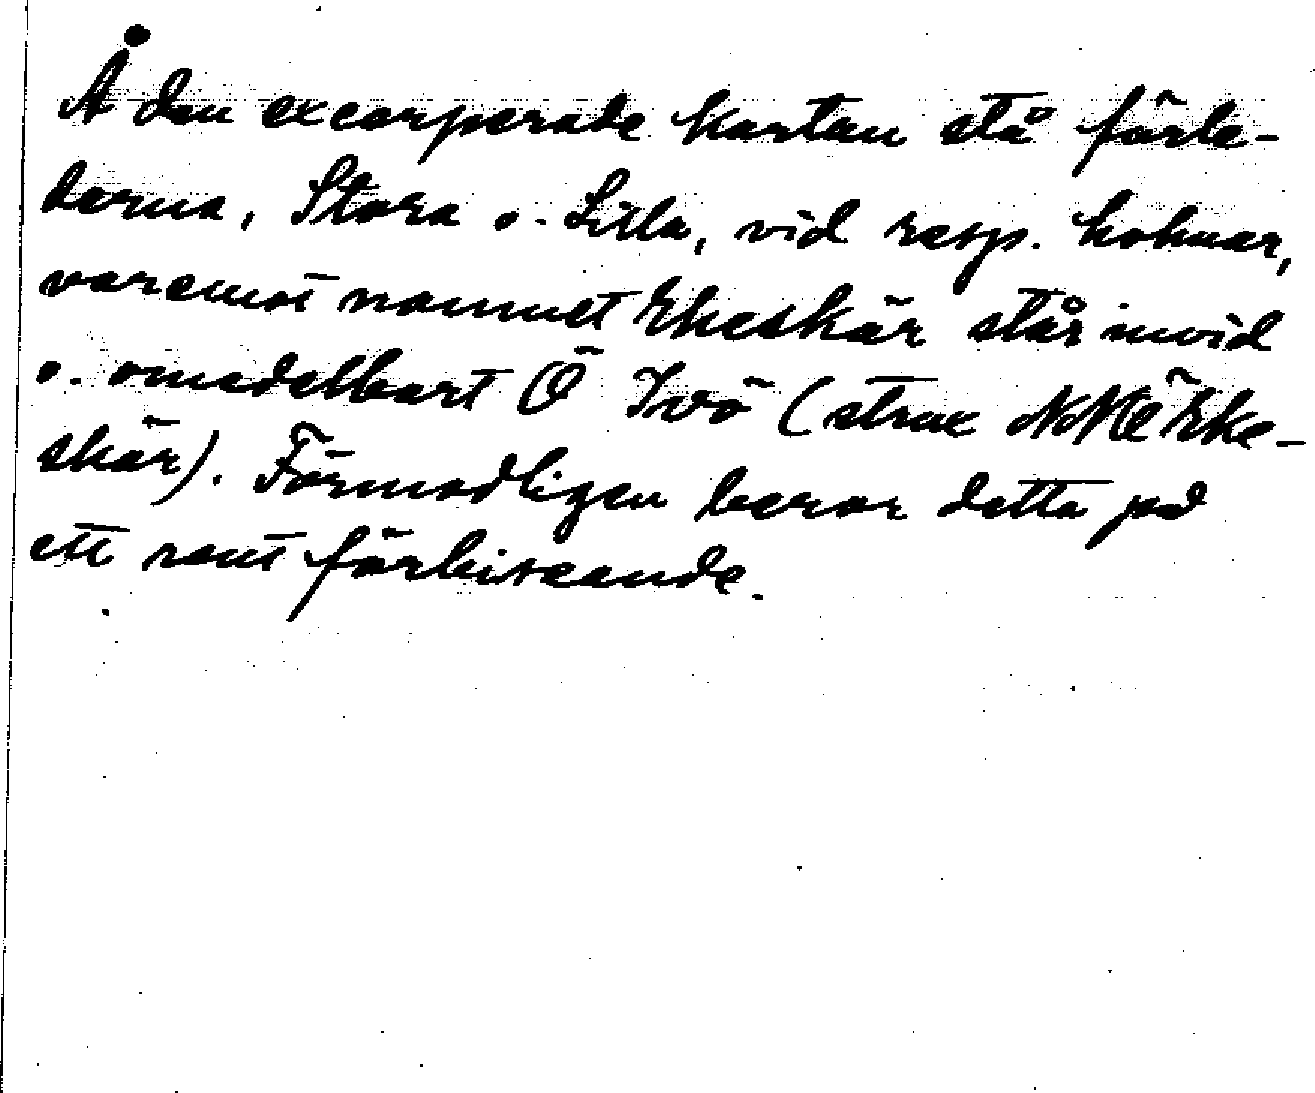 Å den excerperade kartan stå förle-
derna, Stora o. Lilla, vid resp. holmar,
varemot namnet Ekeskär står invid
o. omedelbart Ö Ivö (strax NNÖ Eke-
skär). Förmodligen beror detta på
ett rent förbiseende.